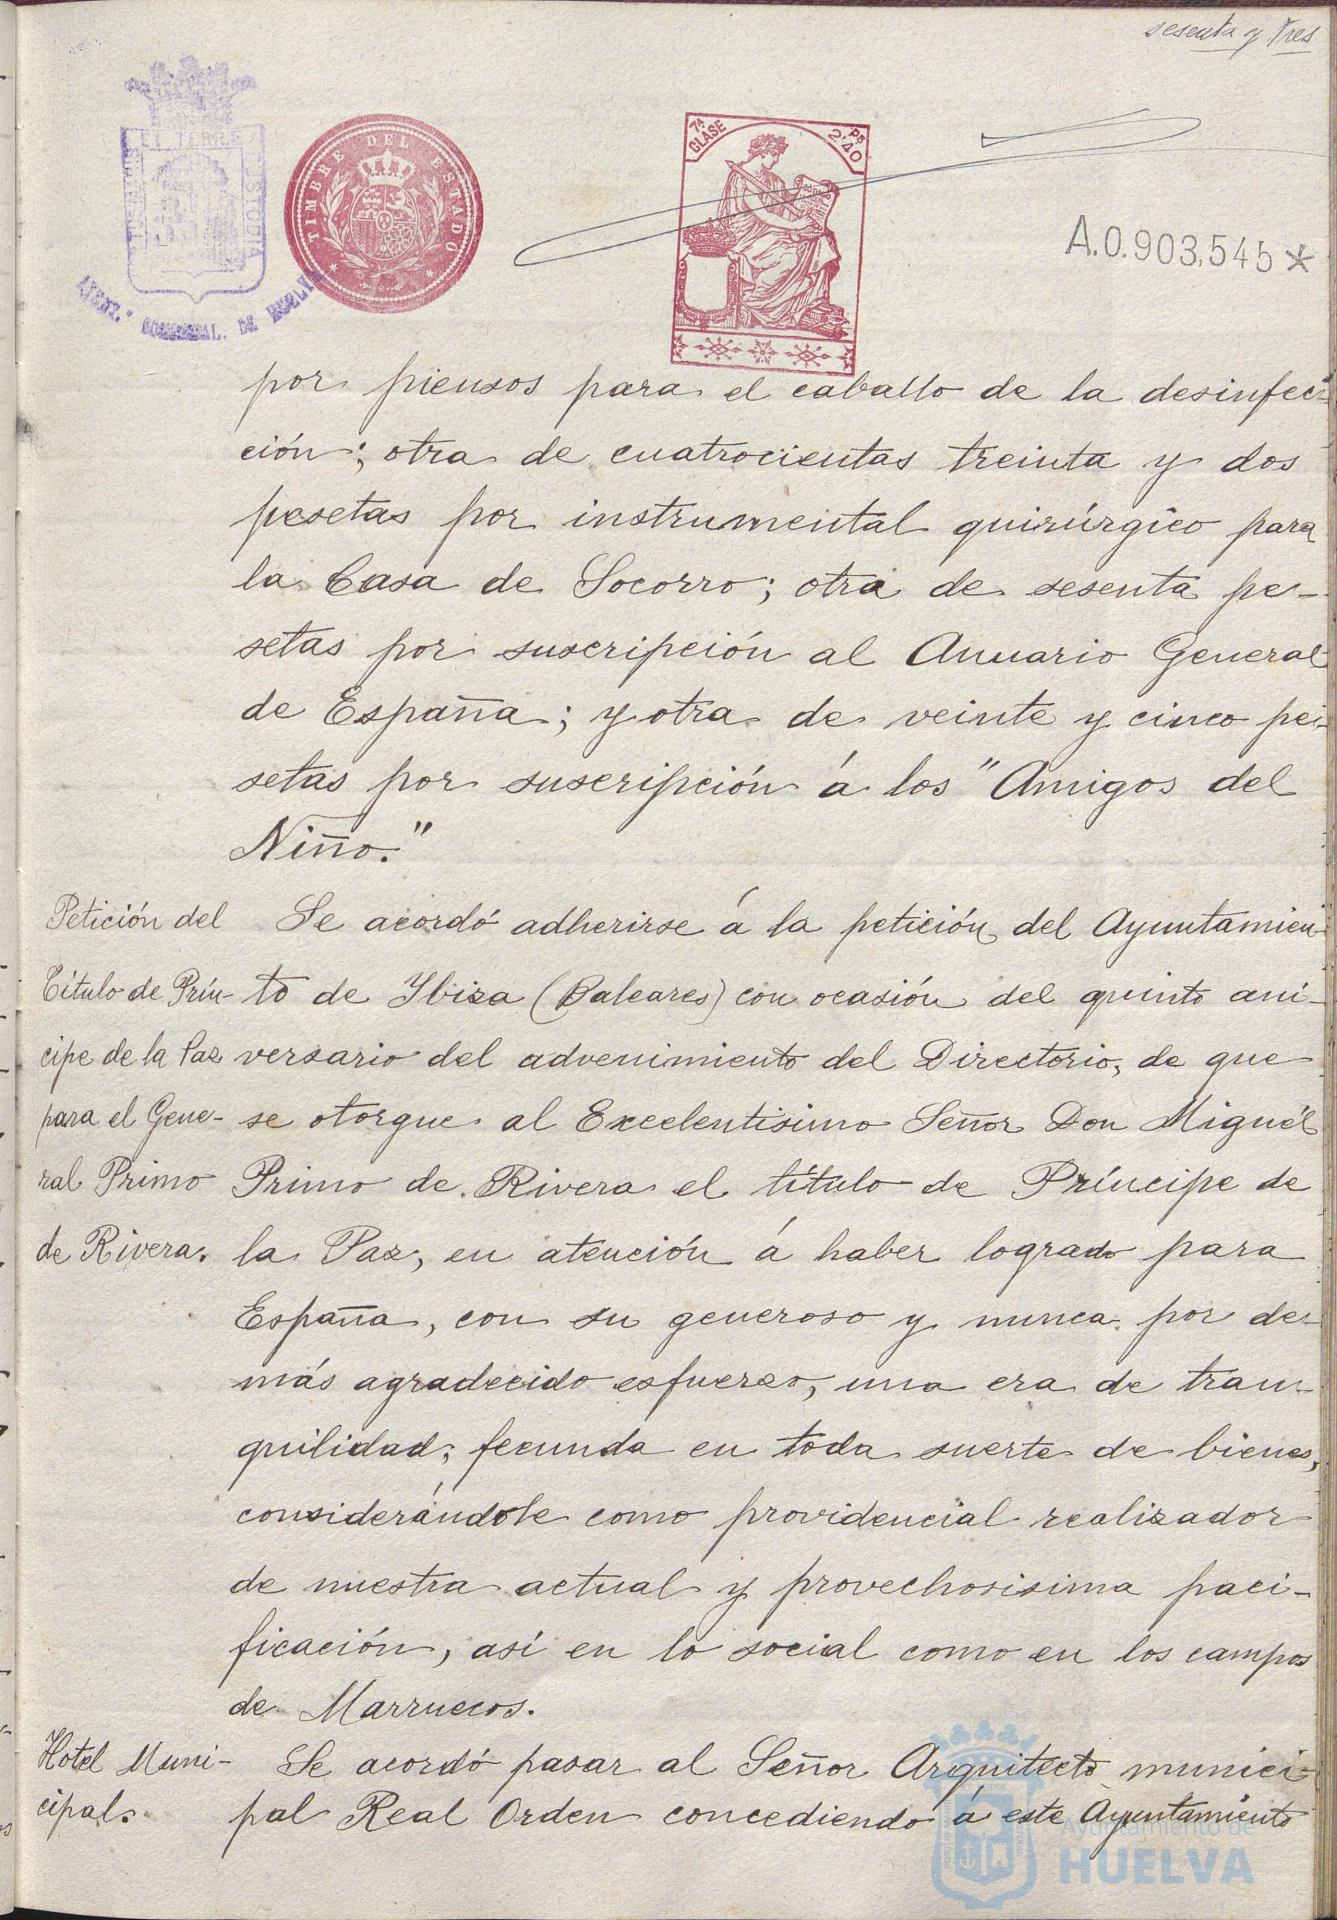 sesenta y tres
TIMBRE DEL ESTADO
7ª CLASE
Ps 2'40
A.0.903,545*
AYUNT.º CONSTITUCIONAL. DE HUELVA
por piensos para el caballo de la desinfec-
ción; otra de cuatrocientas treinta y dos
pesetas por instrumental quirúrgico para
la Casa de Socorro; otra de sesenta pe-
setas por suscripción al Anuario General
de España; y otra de veinte y cinco pe-
setas por suscripción á los "Amigos del
Niño."
Petición del
Título de Prín-
cipe de la Paz
para el Gene-
ral Primo
de Rivera.
Se acordó adherirse á la petición del Ayuntamien-
to de Ybiza (Baleares) con ocasión del quinto ani-
versario del advenimiento del Directorio, de que
se otorgue al Excelentisimo Señor Don Miguél
Primo de Rivera el título de Príncipe de
la Paz, en atención á haber logrado para
España, con su generoso y nunca por de-
más agradecido esfuerzo, una era de tran-
quilidad, fecunda en toda suerte de bienes,
considerándole como providencial realizador
de nuestra actual y provechosisima paci-
ficación, así en lo social como en los campos
de Marruecos.
Hotel Muni-
cipal.
Se acordó pasar al Señor Arquitecto munici-
pal Real Orden concediendo á este Ayuntamiento
Ayuntamiento de
HUELVA